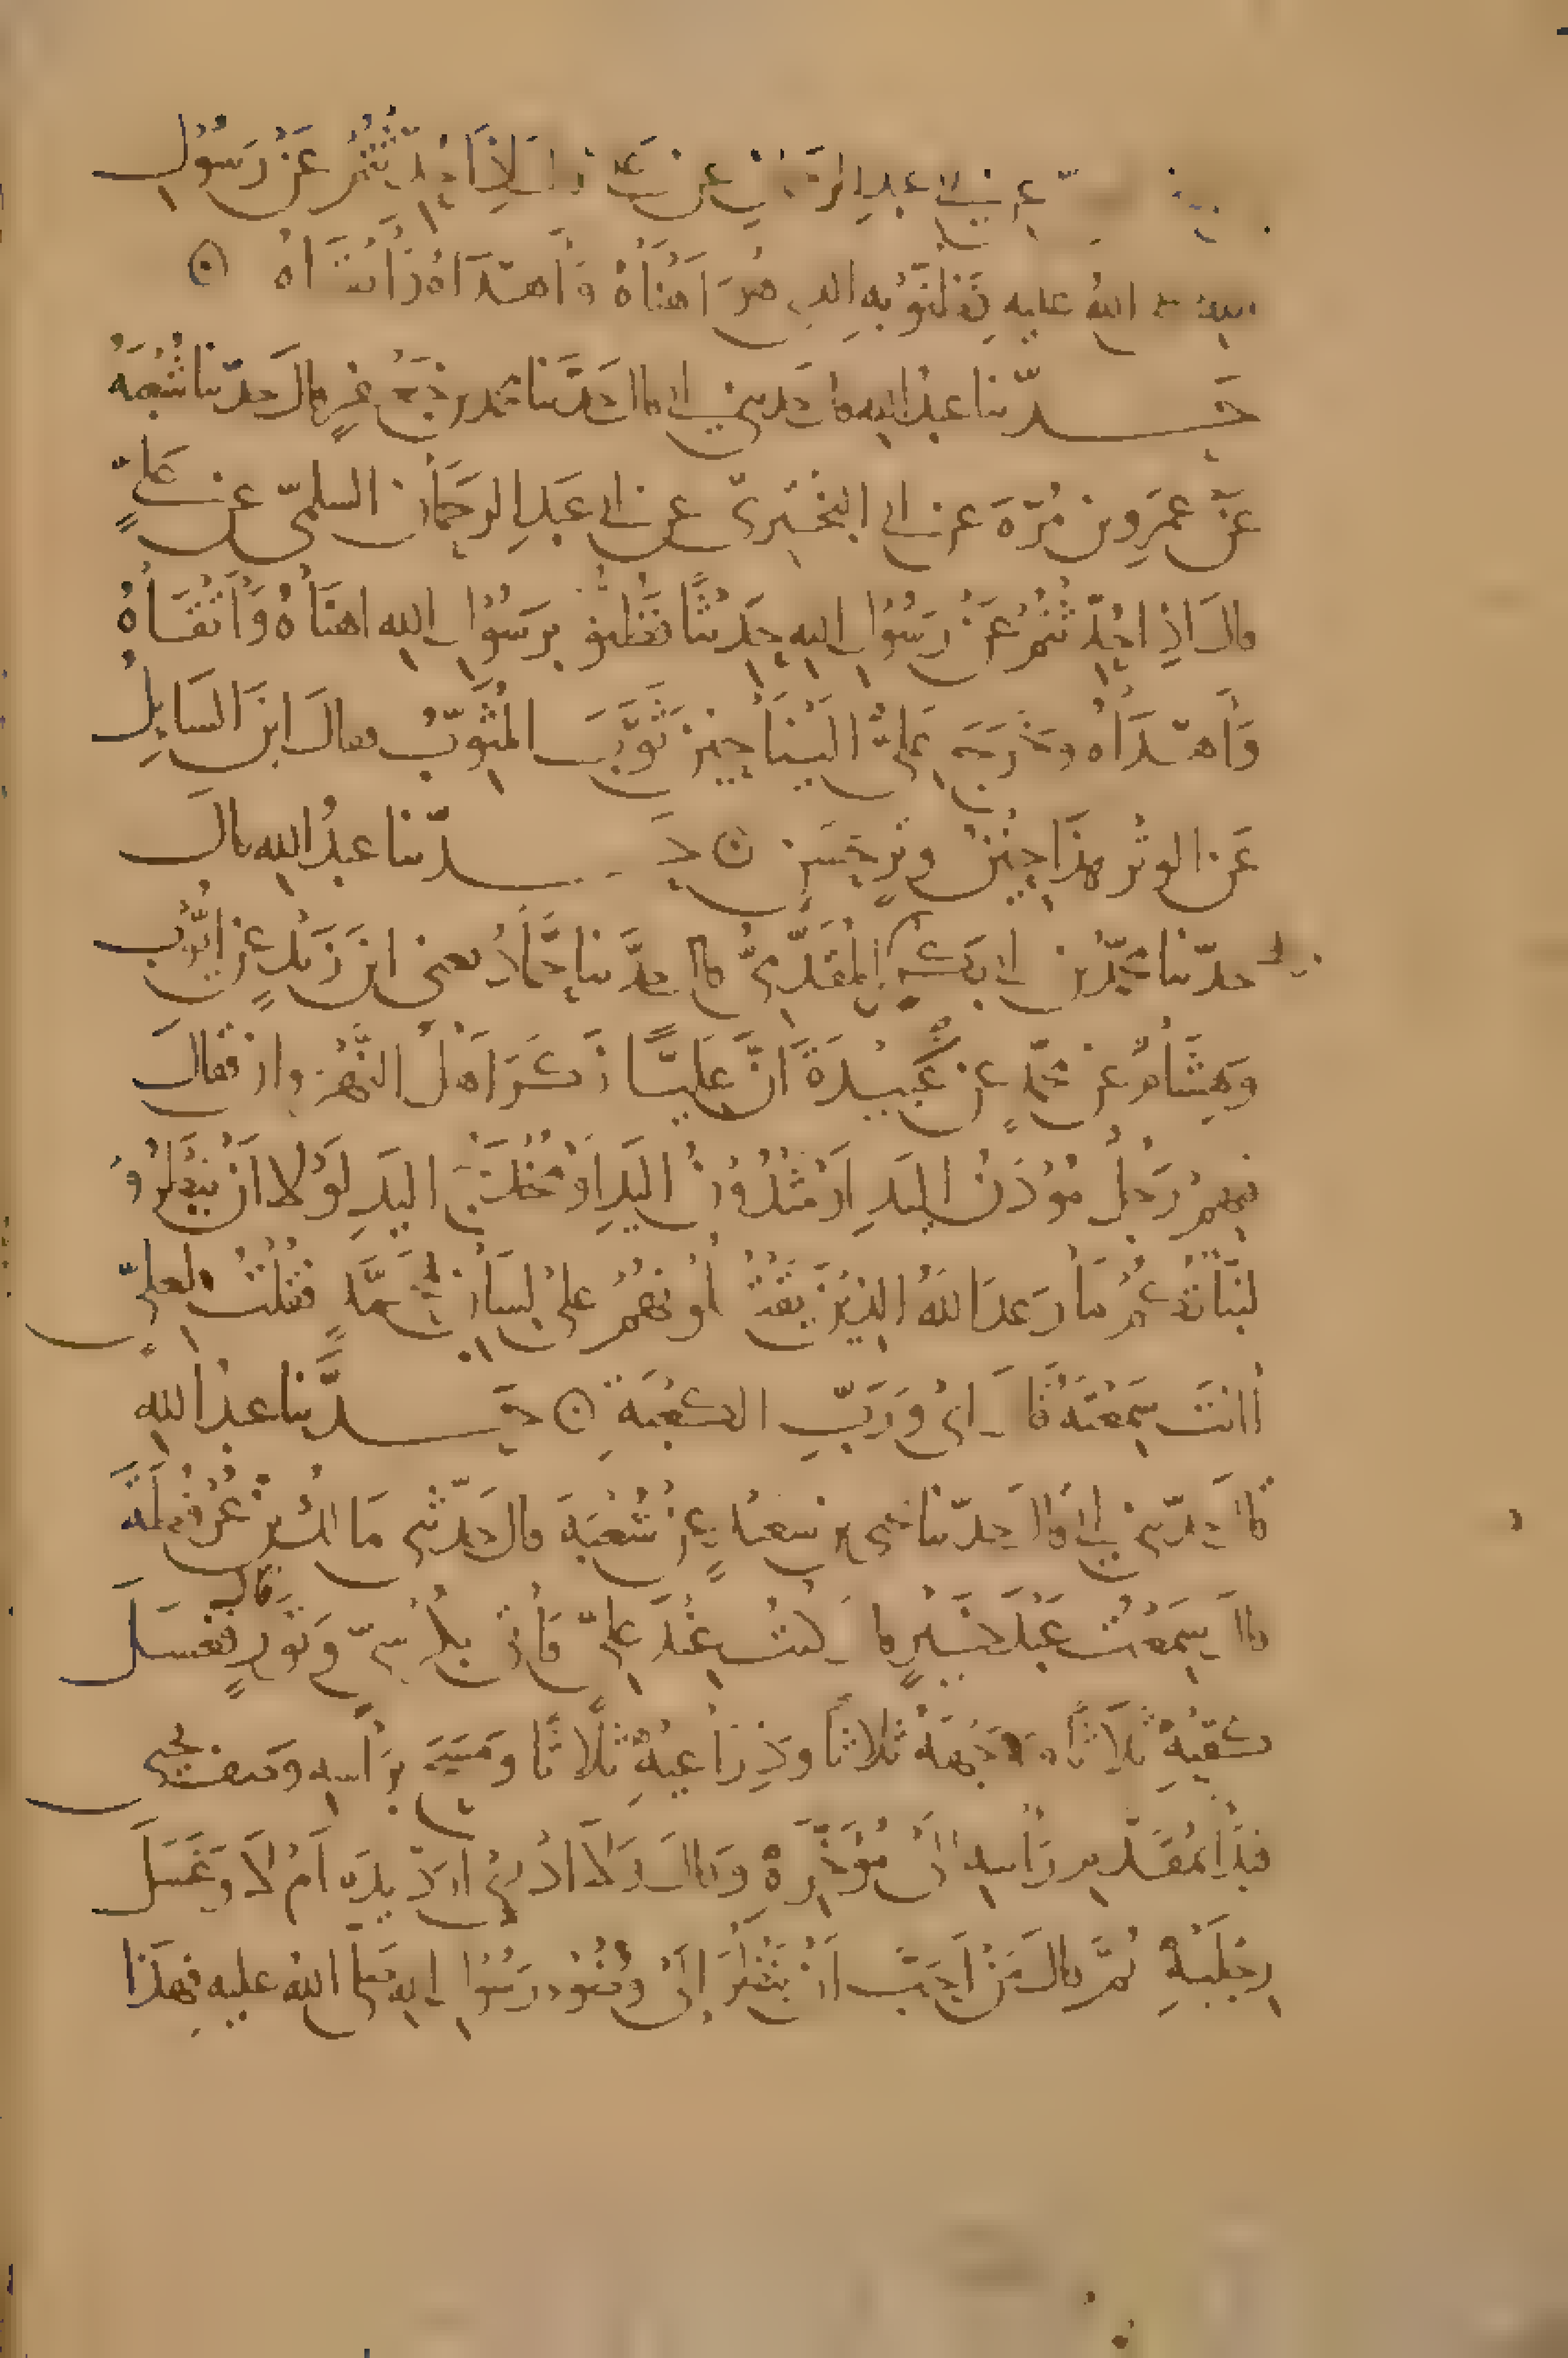 عن أبي عبد الرحمن عن علي قال إذا حُدِّثتُم عَنْ رَسُولِ
الله صلى الله عليه فَظُنُّوا بِهِ الذي هُوَ أَهْنَأُهُ وَأَهْدَاهُ وَأَتْقَاهُ
حَدّثنا عبدُ الله قال حَدثني أبي قال حَدَّثنا محمد بن جَعْفرٍ قالَ حدّثنا شُعْبَةُ
عَنْ عَمْرِو بن مُرَّةَ عن أبي البَخْتَرِيّ عن أبي عَبدِ الرحمان السلميّ عن عَليٍّ
قالَ إِذا حُدِّثتُمْ عَنْ رَسُولِ الله حَدِيثًا فَظُنُّوا بِرَسُولِ الله أهنَأهُ وَأَتْقَاهُ
وَأَهْدَاهُ وخَرَجَ عَليٌّ إلَيْنَا حِينَ ثَوَّبَ المُثَوِّبُ فقالَ أينَ السَائِلُ
عَنِ الوترِ هذَا حِينُ وترٍ حَسَنٍ حَدّثنا عبدُ الله قال
حدّثنا محمّدُ بن أبي بَكرٍ المُقَدَّمِيُّ قال حدَّثنا حَمَّادُ يعني ابنَ زَيْدٍ عن أيُّوبَ
وَهِشَامٍ عن محمّدٍ عن عَبِيدَةَ أَنَّ عَلِيًّا ذَكَرَ أَهْلَ النَّهْروان فقالَ
فيهِمْ رَجُلٌ مُوْدَنُ اليَدِ أَوْ مَثْدُونُ اليَدِ أَوْ مُخْدَجُ اليَدِ لَوْلا أَنْ تَبْطَرُوا
لنَبَّأْتُكُمْ مَا وَعَدَ اللهُ الذِينَ يَقْتُلُونَهُمْ على لِسَانِ مُحَمَّدٍ فقُلْتُ لعليٍّ
أأنتَ سَمِعْتَهُ قال إي وَرَبِّ الكَعْبَةِ حَدَّثنا عبدُ الله
قالَ حدّثني أبي قالَ حدّثنا يحيى بن سعيدٍ عن شُعْبَةَ قال حَدّثني مَالكُ بن عُرْفُطَةَ
قالَ سَمِعْتُ عَبْدَ خَيْرٍ قال كنتُ عِنْدَ عليٍّ فأُتي بكُرْسيّ وَتَوْرٍ قال فغسَلَ
كَفَّيْهِ ثَلاَثًا وَوَجْهَهُ ثلاثًا وَذِرَاعَيْهِ ثلاثًا وَمَسَحَ بِرَأسِهِ وَصف يحيى
فبَدَأ بمُقَدَّمِ رَأْسِهِ إلى مُؤَخَّرِهِ وَقالَ وَلاَ أَدْرِي أرَدّ يدَه أَمْ لاَ وَغَسَلَ
رِجْلَيْهِ ثمَّ قالَ مَنْ أَحَبَّ أَنْ يَنْظُرَ إلَى وُضُوءِ رَسُولِ الله صلى الله عليه فهَذَا